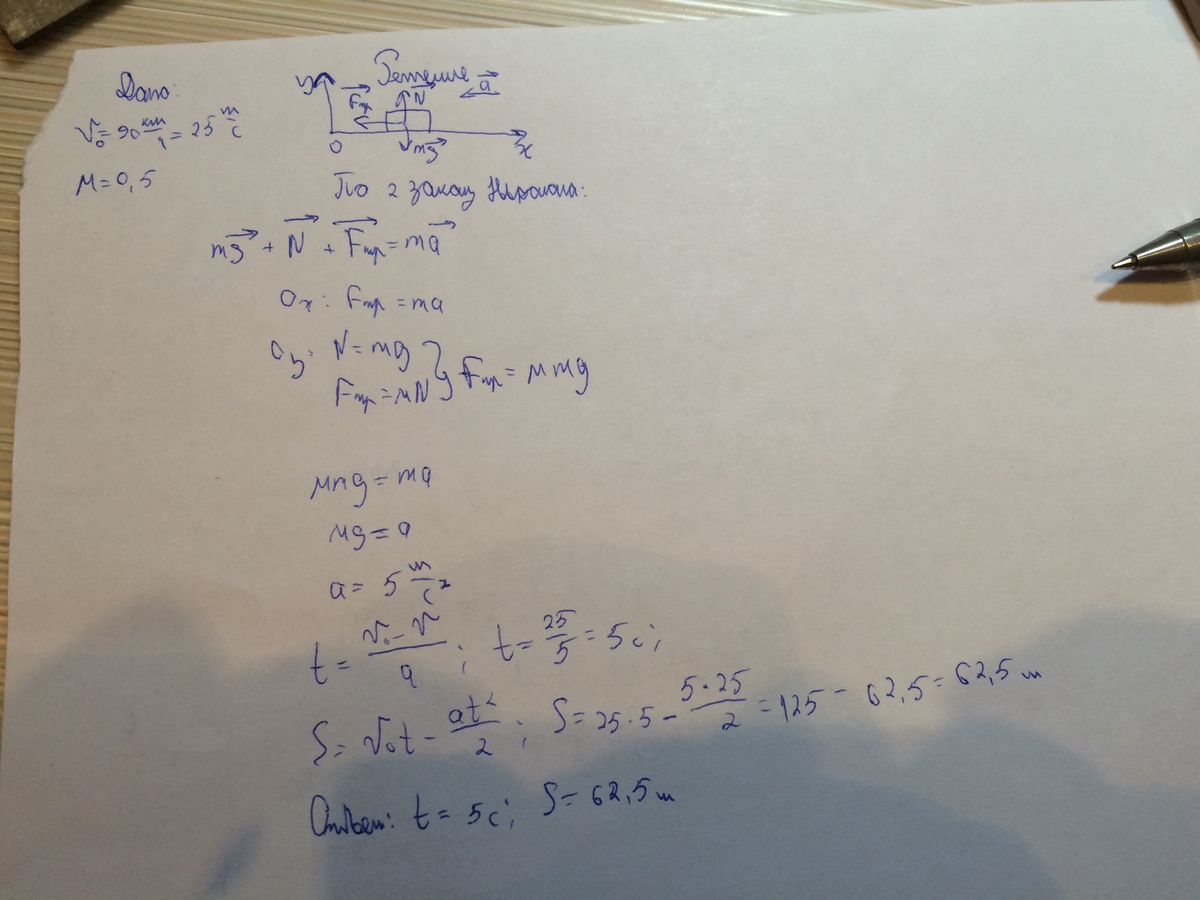 Дано:
Решение
V₀ = 90 км/ч = 25 м/с
μ = 0,5
y
Fтр
N
a
O
mg
x
По 2 закону Ньютона:
mg + N + Fтр = ma
Ox: Fтр = ma
Oy: N = mg
Fтр = μN } Fтр = μmg
μmg = ma
μg = a
a = 5 м/с²
t = (V₀ - V)/a ; t = 25/5 = 5с ;
S = V₀t - at²/2 ; S = 25·5 - 5·25/2 = 125 - 62,5 = 62,5 м
Ответ: t = 5с ; S = 62,5 м